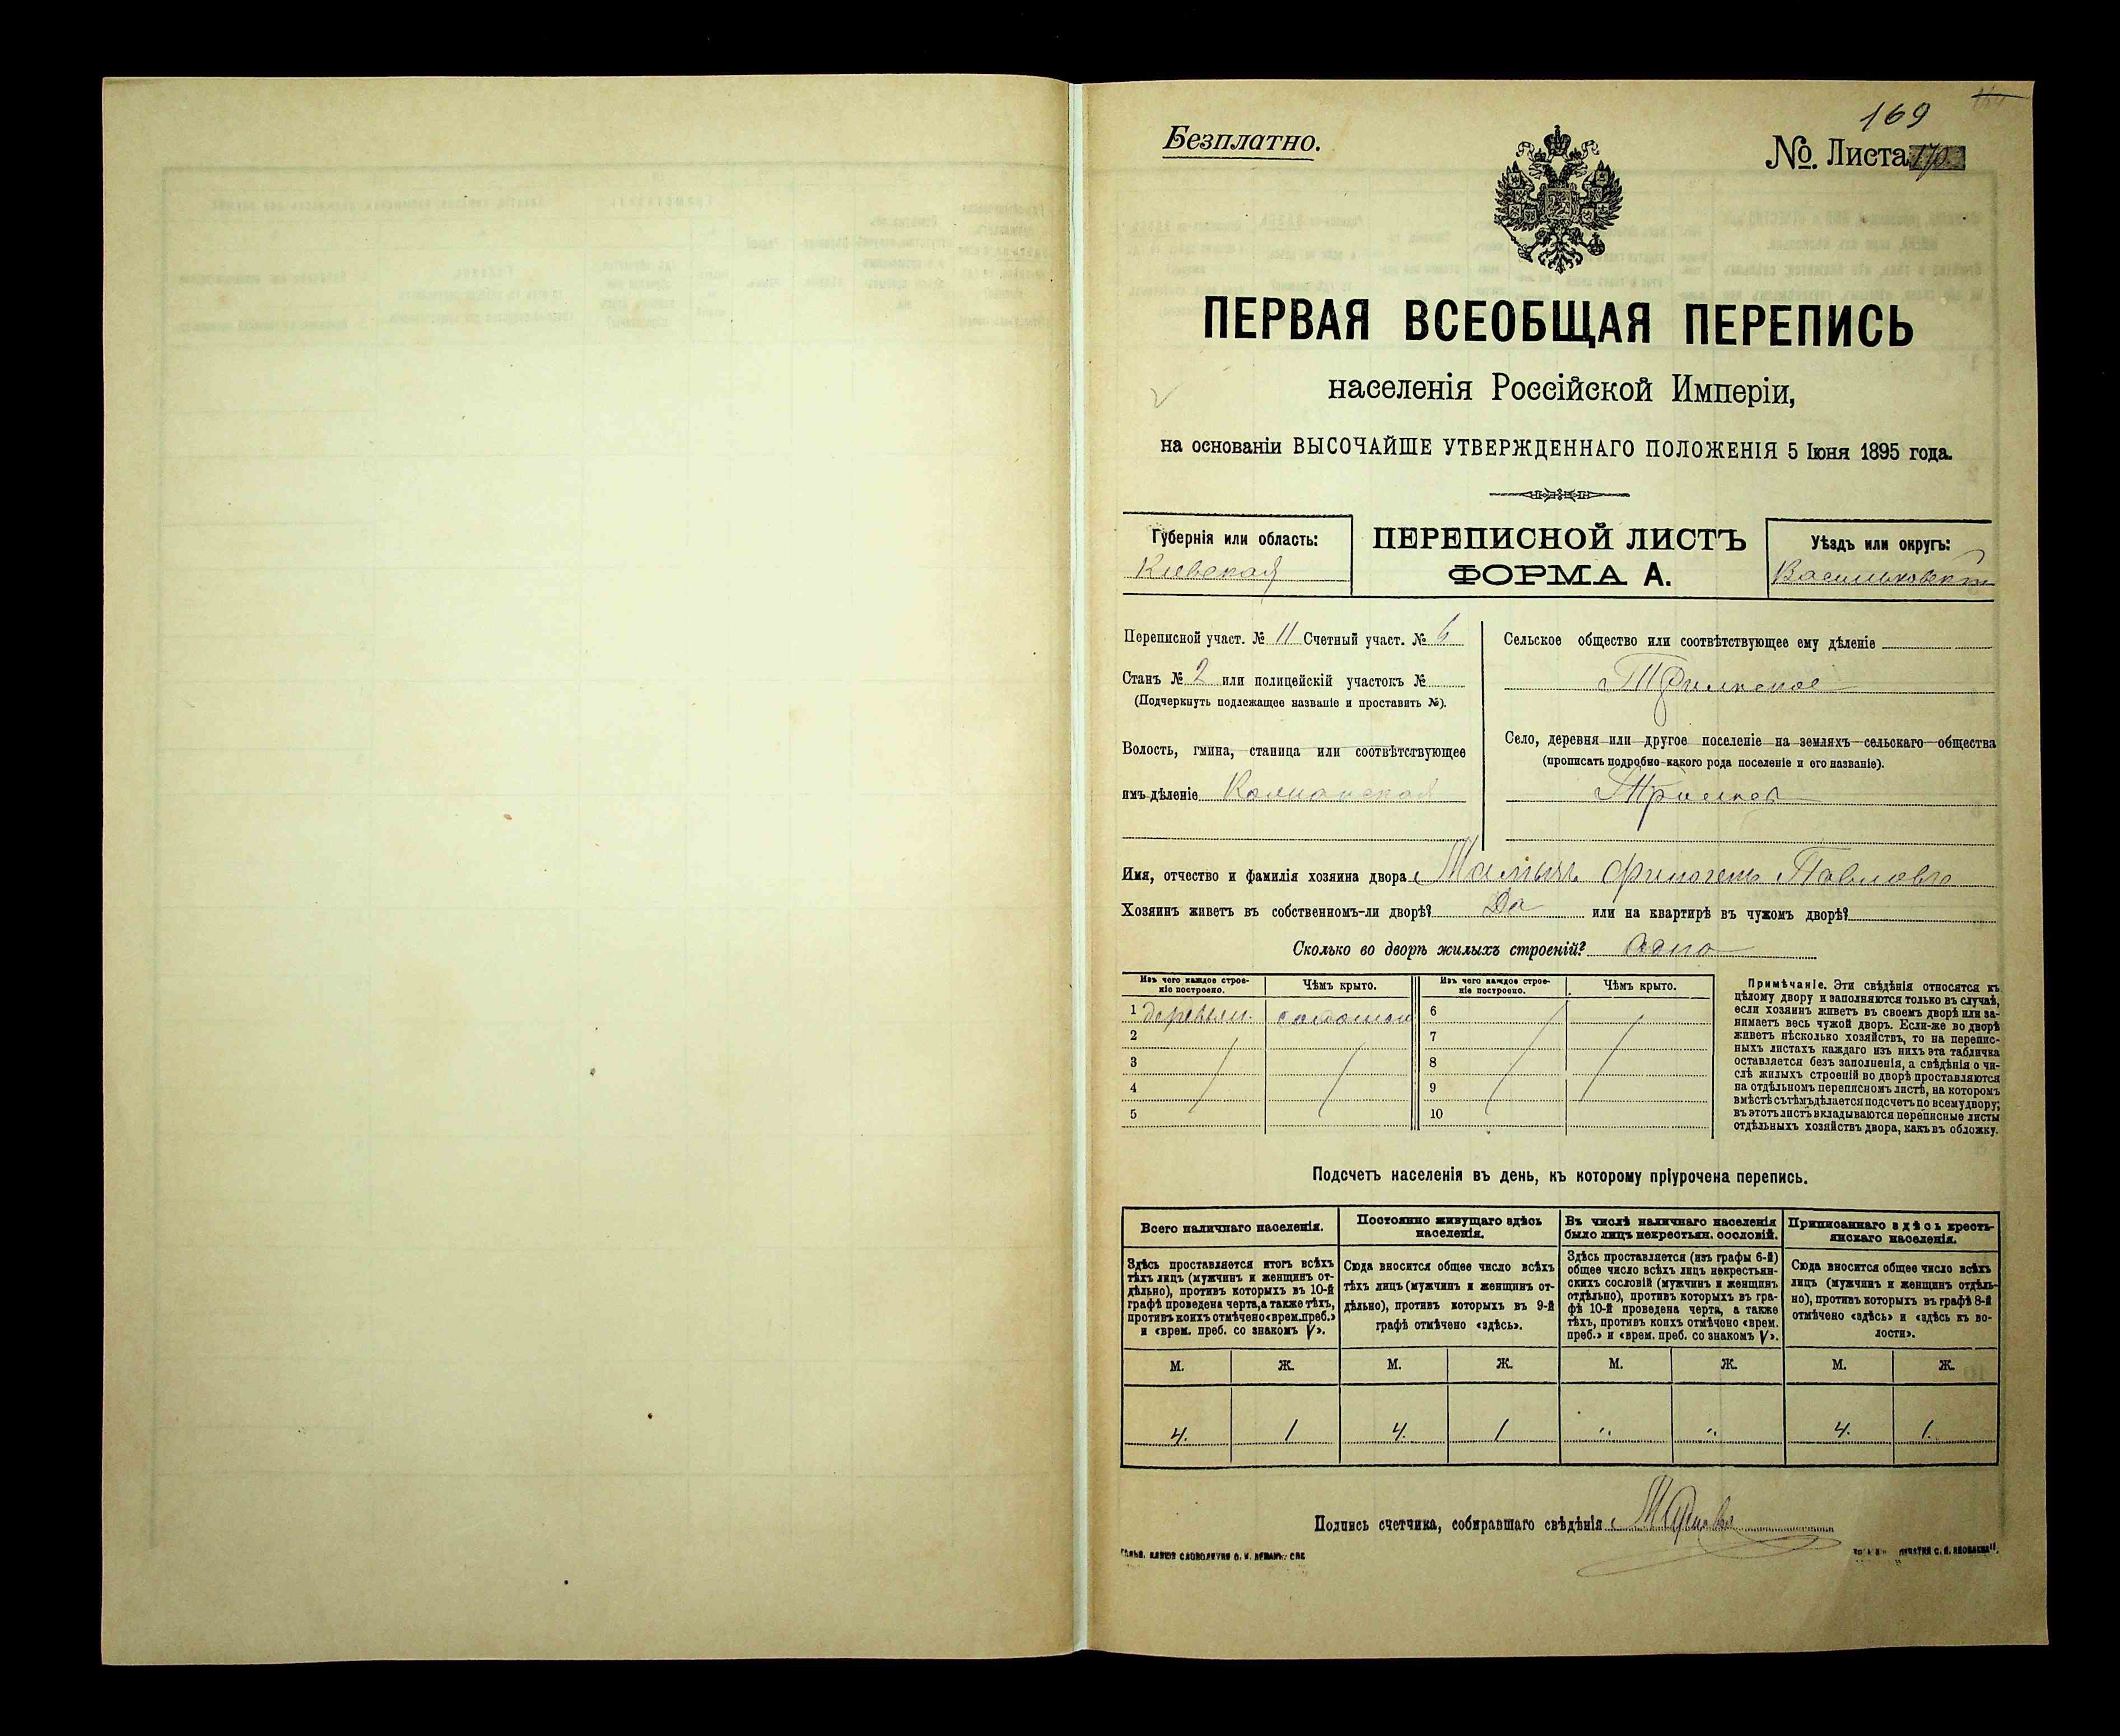 169
Безплатно.
№. Листа 170.
ПЕРВАЯ ВСЕОБЩАЯ ПЕРЕПИСЬ
населенія Россійской Имперіи,
на основаніи ВЫСОЧАЙШЕ УТВЕРЖДЕННАГО ПОЛОЖЕНІЯ 5 Іюня 1895 года.
Губернія или область:
Кіевская
ПЕРЕПИСНОЙ ЛИСТЪ
ФОРМА А.
Уѣздъ или округъ:
Васильковскій
Переписной участ. № 11 Счетный участ. № 6
Станъ № 2 или полицейскій участокъ №
(Подчеркнуть подлежащее названіе и проставить №).
Волость, гмина, станица или соотвѣтствующее
имъ дѣленіе
Сельское общество или соотвѣтствующее ему дѣленіе
Село, деревня или другое поселеніе на земляхъ сельскаго общества
(прописать подробно какого рода поселеніе и его названіе).
Имя, отчество и фамилія хозяина двора
Хозяинъ живетъ въ собственномъ-ли дворѣ? Да или на квартирѣ въ чужомъ дворѣ?
Сколько во дворѣ жилыхъ строеній? одно
Изъ чего каждое строеніе построено.
Чѣмъ крыто.
Изъ чего каждое строеніе построено.
Чѣмъ крыто.
1 деревян. соломой
2
3
4
5
6
7
8
9
10
Примѣчаніе. Эти свѣдѣнія относятся къ
цѣлому двору и заполняются только въ случаѣ,
если хозяинъ живетъ въ своемъ дворѣ или за-
нимаетъ весь чужой дворъ. Если-же во дворѣ
живетъ нѣсколько хозяйствъ, то на перепис-
ныхъ листахъ каждаго изъ нихъ эта табличка
оставляется безъ заполненія, а свѣдѣнія о чи-
слѣ жилыхъ строеній во дворѣ проставляются
на отдѣльномъ переписномъ листѣ, на которомъ
вмѣстѣ съ тѣмъ дѣлается подсчетъ по всему двору;
въ этотъ листъ вкладываются переписные листы
отдѣльныхъ хозяйствъ двора, какъ въ обложку.
Подсчетъ населенія въ день, къ которому пріурочена перепись.
Всего наличнаго населенія.
Здѣсь проставляется итогъ всѣхъ
тѣхъ лицъ (мужчинъ и женщинъ от-
дѣльно), противъ которыхъ въ 10-й
графѣ проведена черта, а также тѣхъ,
противъ коихъ отмѣчено «врем. преб.»
и «врем. преб. со знакомъ V».
Постоянно живущаго здѣсь
населенія.
Сюда вносится общее число всѣхъ
тѣхъ лицъ (мужчинъ и женщинъ от-
дѣльно), противъ которыхъ въ 9-й
графѣ отмѣчено «здѣсь».
Въ числѣ наличнаго населенія
было лицъ некрестьян. сословій.
Здѣсь проставляется (изъ графы 6-й)
общее число всѣхъ лицъ некрестьян-
скихъ сословій (мужчинъ и женщинъ
отдѣльно), противъ которыхъ въ гра-
фѣ 10-й проведена черта, а также
тѣхъ, противъ коихъ отмѣчено «врем.
преб.» и «врем. преб. со знакомъ V».
Приписаннаго здѣсь кресть-
янскаго населенія.
Сюда вносится общее число всѣхъ
лицъ (мужчинъ и женщинъ отдѣль-
но), противъ которыхъ въ графѣ 8-й
отмѣчено «здѣсь» и «здѣсь къ во-
лости».
М. Ж. М. Ж. М. Ж. М. Ж.
4. 1 4. 1 " " 4. 1.
Подпись счетчика, собиравшаго свѣдѣнія